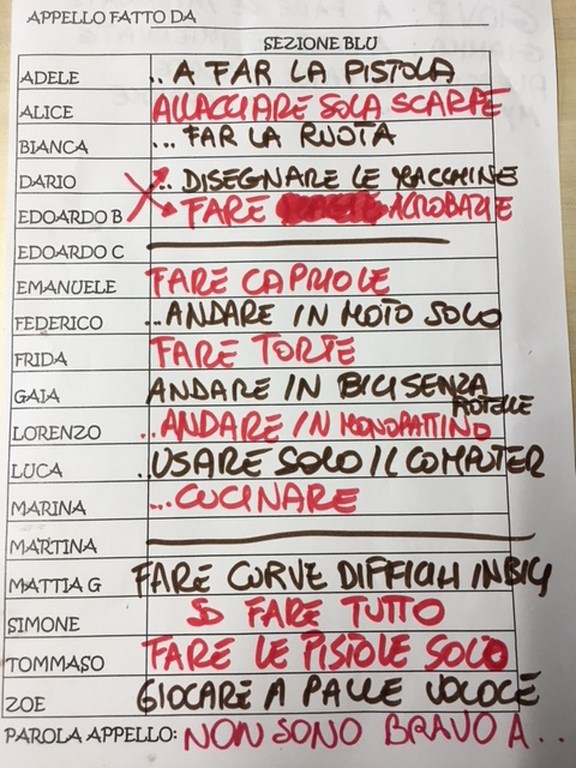 APPELLO FATTO DA
SEZIONE BLU
ADELE .. A FAR LA PISTOLA
ALICE ALLACCIARE SOLA SCARPE
BIANCA ... FAR LA RUOTA
DARIO .. DISEGNARE LE MACCHINE
EDOARDO B FARE ACROBAZIE
EDOARDO C
EMANUELE FARE CAPRIOLE
FEDERICO ..ANDARE IN MOTO SOLO
FRIDA FARE TORTE
GAIA ANDARE IN BICI SENZA
ROTELLE
LORENZO ..ANDARE IN MONOPATTINO
LUCA ..USARE SOLO IL COMPUTER
MARINA ...CUCINARE
MARTINA
MATTIA G FARE CURVE DIFFICILI IN BICI
SIMONE SO FARE TUTTO
TOMMASO FARE LE PISTOLE SOLO
ZOE GIOCARE A PALLE VOLOCE
PAROLA APPELLO: NON SONO BRAVO A...